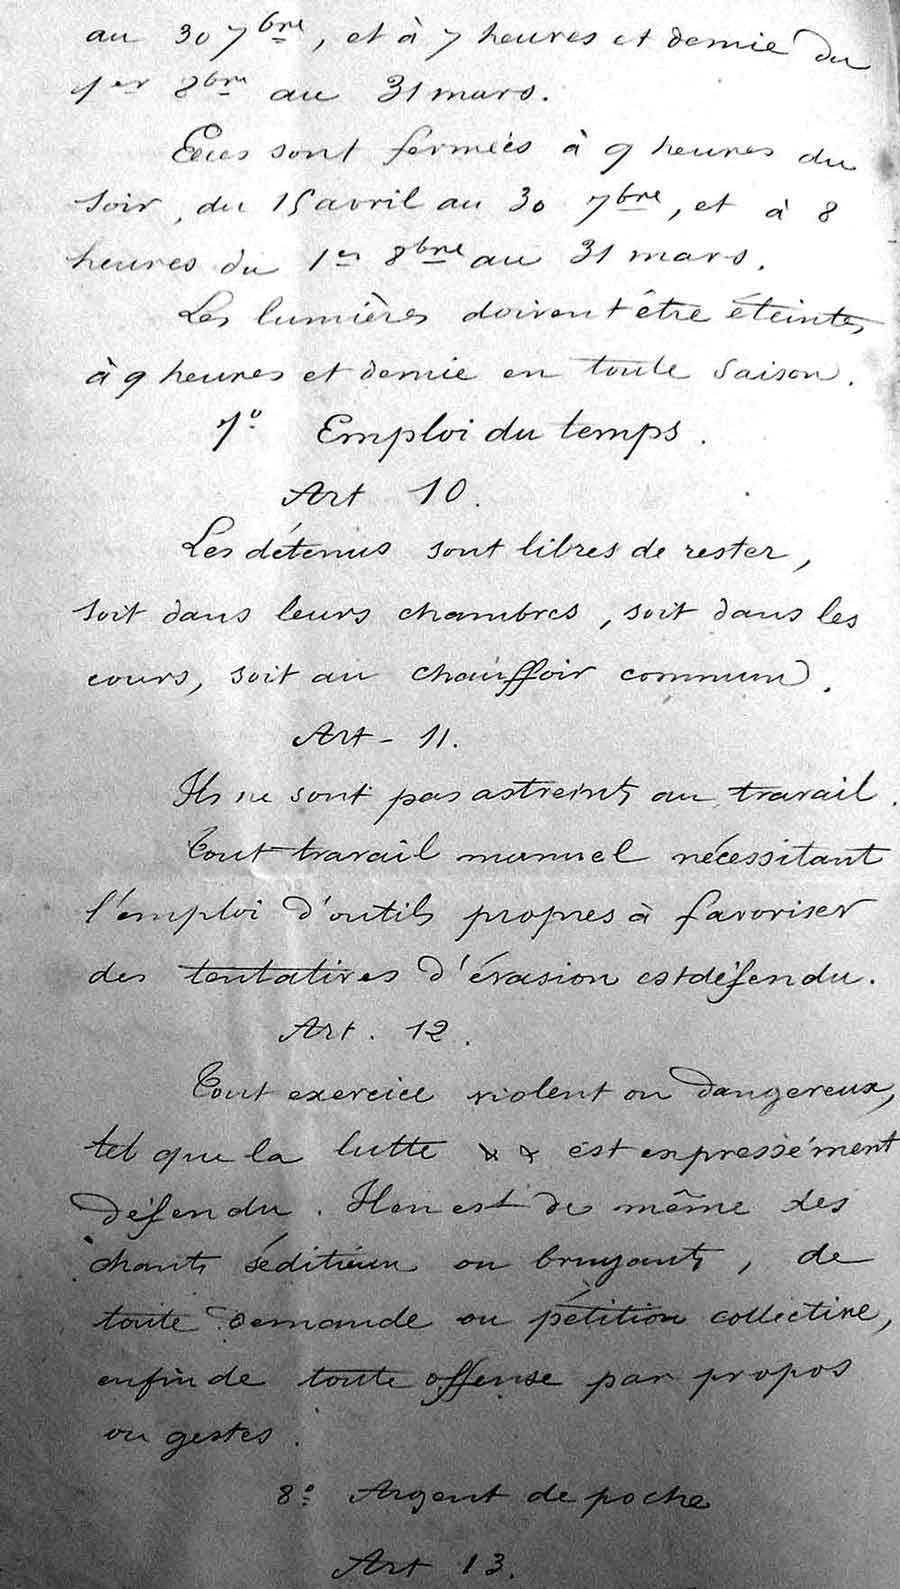 au 30 7bre, et à 7 heures et demie du
1er 8bre au 31 mars.
Elles sont fermées à 9 heures du
soir, du 15 avril au 30 7bre, et à 8
heures du 1er 8bre au 31 mars.
Les lumières doivent être éteintes
à 9 heures et demie en toute saison.
7º Emploi du temps.
Art 10.
Les détenus sont libres de rester,
soit dans leurs chambres, soit dans les
cours, soit au chauffoir commun.
Art - 11.
Ils ne sont pas astreints au travail.
Tout travail manuel nécessitant
l'emploi d'outils propres à favoriser
des tentatives d'évasion est défendu.
Art. 12.
Tout exercice violent ou dangereux,
tel que la lutte est expressément
défendu. Il en est de même des
chants séditieux ou bruyants, de
toute demande ou pétition collective,
enfin de toute offense par propos
ou gestes.
8º Argent de poche
Art 13.